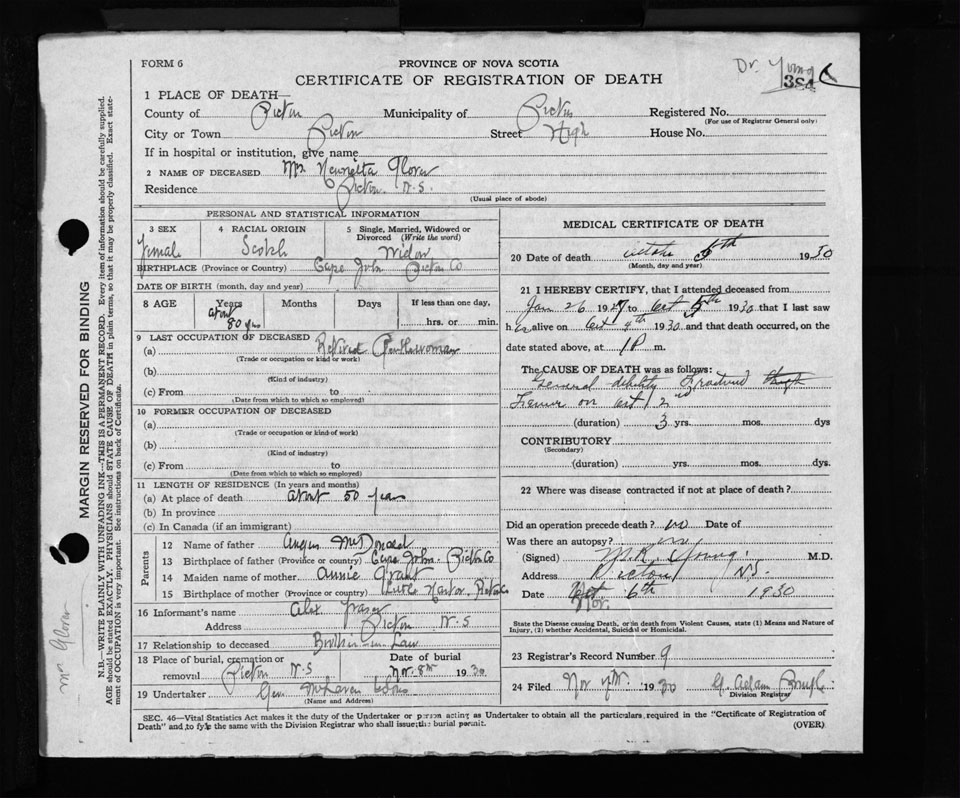 Dr. Young
384
FORM 6
PROVINCE OF NOVA SCOTIA
CERTIFICATE OF REGISTRATION OF DEATH
1 PLACE OF DEATH—
County of Pictou Municipality of Pictou Registered No.
(For use of Registrar General only)
City or Town Pictou Street High House No.
If in hospital or institution, give name
2 NAME OF DECEASED Mrs Henrietta Glover
Residence Pictou N.S.
(Usual place of abode)
PERSONAL AND STATISTICAL INFORMATION
3 SEX 4 RACIAL ORIGIN 5 Single, Married, Widowed or Divorced (Write the word)
Female Scotch Widow
BIRTHPLACE (Province or Country) Cape John Pictou Co
DATE OF BIRTH (month, day and year)
8 AGE Years Months Days If less than one day,
about 80 yrs hrs. or min.
9 LAST OCCUPATION OF DECEASED
(a) Retired Gentlewoman
(Trade or occupation or kind or work)
(b)
(Kind of industry)
(c) From to
(Date from which to which so employed)
10 FORMER OCCUPATION OF DECEASED
(a)
(Trade or occupation or kind of work)
(b)
(Kind of industry)
(c) From to
(Date from which to which so employed)
11 LENGTH OF RESIDENCE (In years and months)
(a) At place of death about 50 years
(b) In province
(c) In Canada (if an immigrant)
Parents
12 Name of father Angus McDonald
13 Birthplace of father (Province or country) Cape John, Pictou Co
14 Maiden name of mother Annie Grant
15 Birthplace of mother (Province or country) Harbor, Pictou Co
16 Informant's name Alex Fraser
Address Pictou N.S
17 Relationship to deceased Brother in Law
18 Place of burial, cremation or removal Pictou N.S Date of burial Nov. 8th 1930
19 Undertaker Geo. McLaren & Sons
(Name and Address)
MEDICAL CERTIFICATE OF DEATH
20 Date of death 5th 1930
(Month, day and year)
21 I HEREBY CERTIFY, that I attended deceased from
Jan 26 1927 to Oct 5th 1930 that I last saw
her alive on Oct 4th 1930 and that death occurred, on the
date stated above, at 1 P m.
The CAUSE OF DEATH was as follows:
General debility Fractured thigh
Femur on Oct 2nd
(duration) 3 yrs. mos. dys
CONTRIBUTORY
(Secondary)
(duration) yrs. mos. dys.
22 Where was disease contracted if not at place of death?
Did an operation precede death? no Date of
Was there an autopsy? no
(Signed) M.R. Young M.D.
Address Pictou NS.
Date Oct 6th 1930
Nov.
State the Disease causing Death, or in death from Violent Causes, state (1) Means and Nature of Injury, (2) whether Accidental, Suicidal or Homicidal.
23 Registrar's Record Number 9
24 Filed Nov 7th 1930 G. Adam
Division Registrar
SEC. 46—Vital Statistics Act makes it the duty of the Undertaker or person acting as Undertaker to obtain all the particulars required in the "Certificate of Registration of
Death" and to fyle the same with the Division Registrar who shall issue the burial permit. (OVER)
MARGIN RESERVED FOR BINDING
N.B.—WRITE PLAINLY WITH UNFADING INK—THIS IS A PERMANENT RECORD. Every item of information should be carefully supplied.
AGE should be stated EXACTLY. PHYSICIANS should STATE CAUSE OF DEATH in plain terms, so that it may be properly classified. Exact state-
ment of OCCUPATION is very important. See instructions on back of Certificate.
Mr Glover